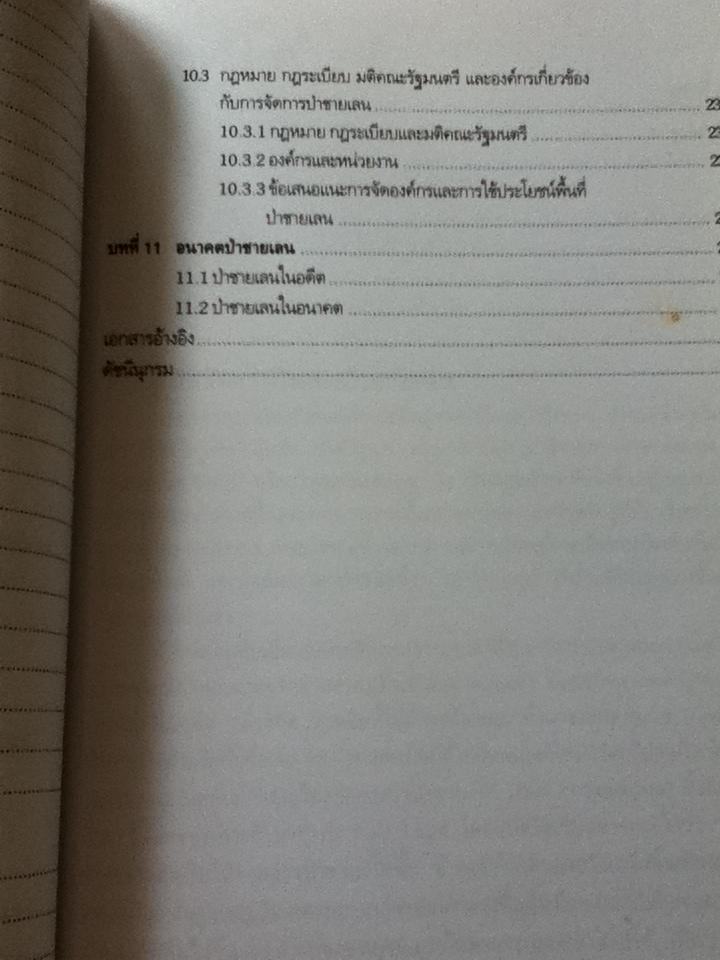 10.3 กฎหมาย กฎระเบียบ มติคณะรัฐมนตรี และองค์กรเกี่ยวข้อง
กับการจัดการป่าชายเลน
10.3.1 กฎหมาย กฎระเบียบและมติคณะรัฐมนตรี
10.3.2 องค์กรและหน่วยงาน
10.3.3 ข้อเสนอแนะการจัดองค์กรและการใช้ประโยชน์พื้นที่
ป่าชายเลน
บทที่ 11 อนาคตป่าชายเลน
11.1 ป่าชายเลนในอดีต
11.2 ป่าชายเลนในอนาคต
เอกสารอ้างอิง
ดัชนีนุกรม